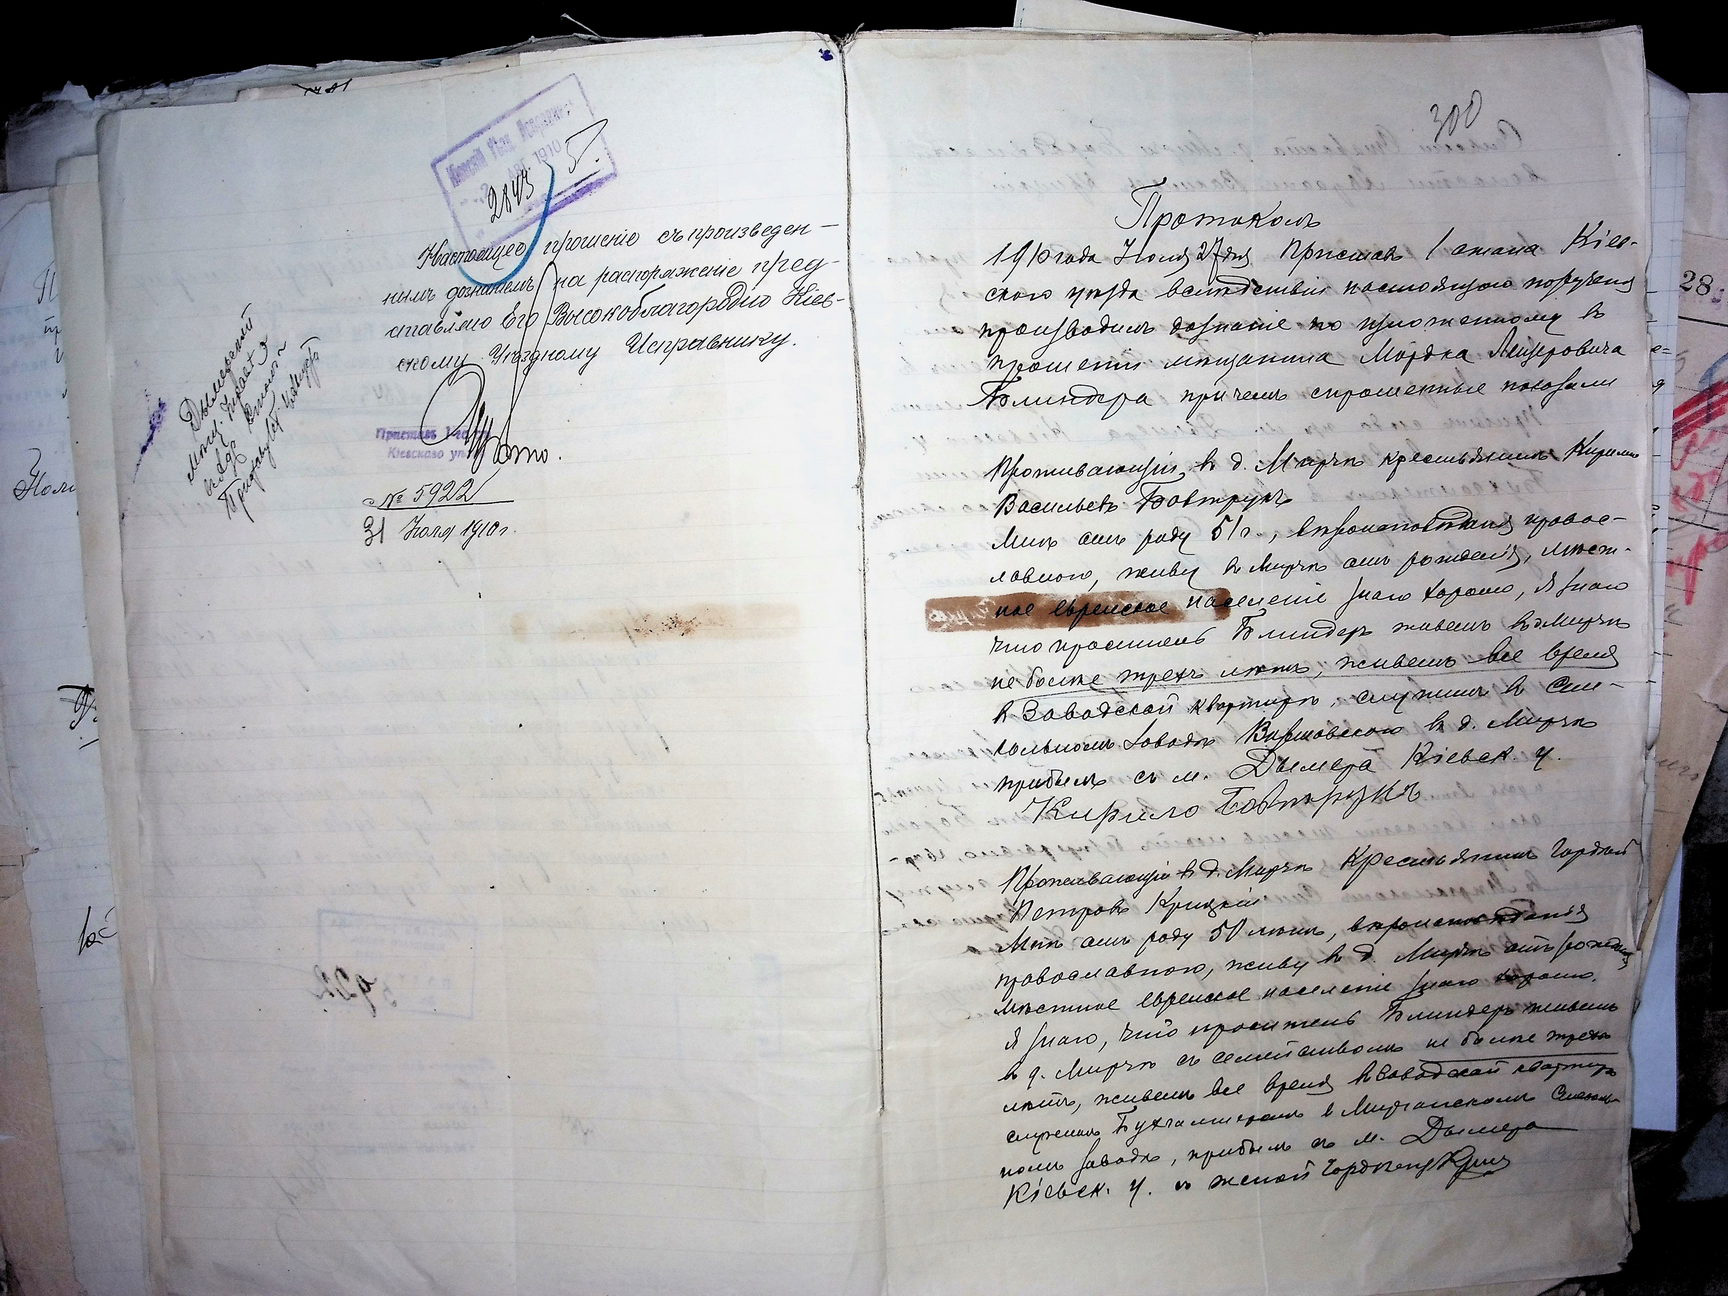 2843
5.
Настоящее прошеніе съ произведен-
нымъ дознаніемъ на распоряженіе пред-
ставляю Его Высокоблагородію Кіев-
скому Уѣздному Исправнику.
Приставъ 1-го
Кіевскаго
№ 5922
31 Іюля 1910 г.
300
Протоколъ
1910 года Іюля 27 дня Приставъ 1 стана Кіев-
скаго уѣзда вслѣдствіи настоящаго
производилъ дознаніе по изложенному въ
прошеніи мѣщанина Мордка Лейзеровича
Блиндера причемъ спрошенные показали
Проживающій въ д. Мирчѣ крестьянинъ Кирилло
Васильевъ Бовтрукъ
Мнѣ отъ роду 51 г., вѣроисповѣданія правос-
лавного, живу въ Мирчѣ отъ рожденія, мѣст-
ное еврейское населеніе знаю хорошо, я знаю
что проситель Блиндеръ живетъ въ Мирчѣ
не болѣе трехъ лѣтъ, живетъ все время
въ Заводской квартирѣ, служитъ въ Сте-
кольномъ заводѣ Варшавского въ д. Мирчѣ
прибылъ съ м. Дымера Кіевск. у.
Кирило Бовтрукъ
Проживающій въ д. Мирчѣ Крестьянинъ Гордей
Петровъ Крицкій
Мнѣ отъ роду 50 лѣтъ, вѣроисповѣданія
православного, живу въ д. Мирчѣ отъ рожденія
мѣстное еврейское населеніе знаю хорошо.
Я знаю, что проситель Блиндеръ живетъ
въ д. Мирчѣ съ семействомъ не болѣе трехъ
лѣтъ, живетъ все время въ Заводской квартирѣ
служитъ Бухгалтеромъ въ Мирчанскомъ Стеколь-
номъ заводѣ, прибылъ съ м. Дымера
Кіевск. у. съ женой